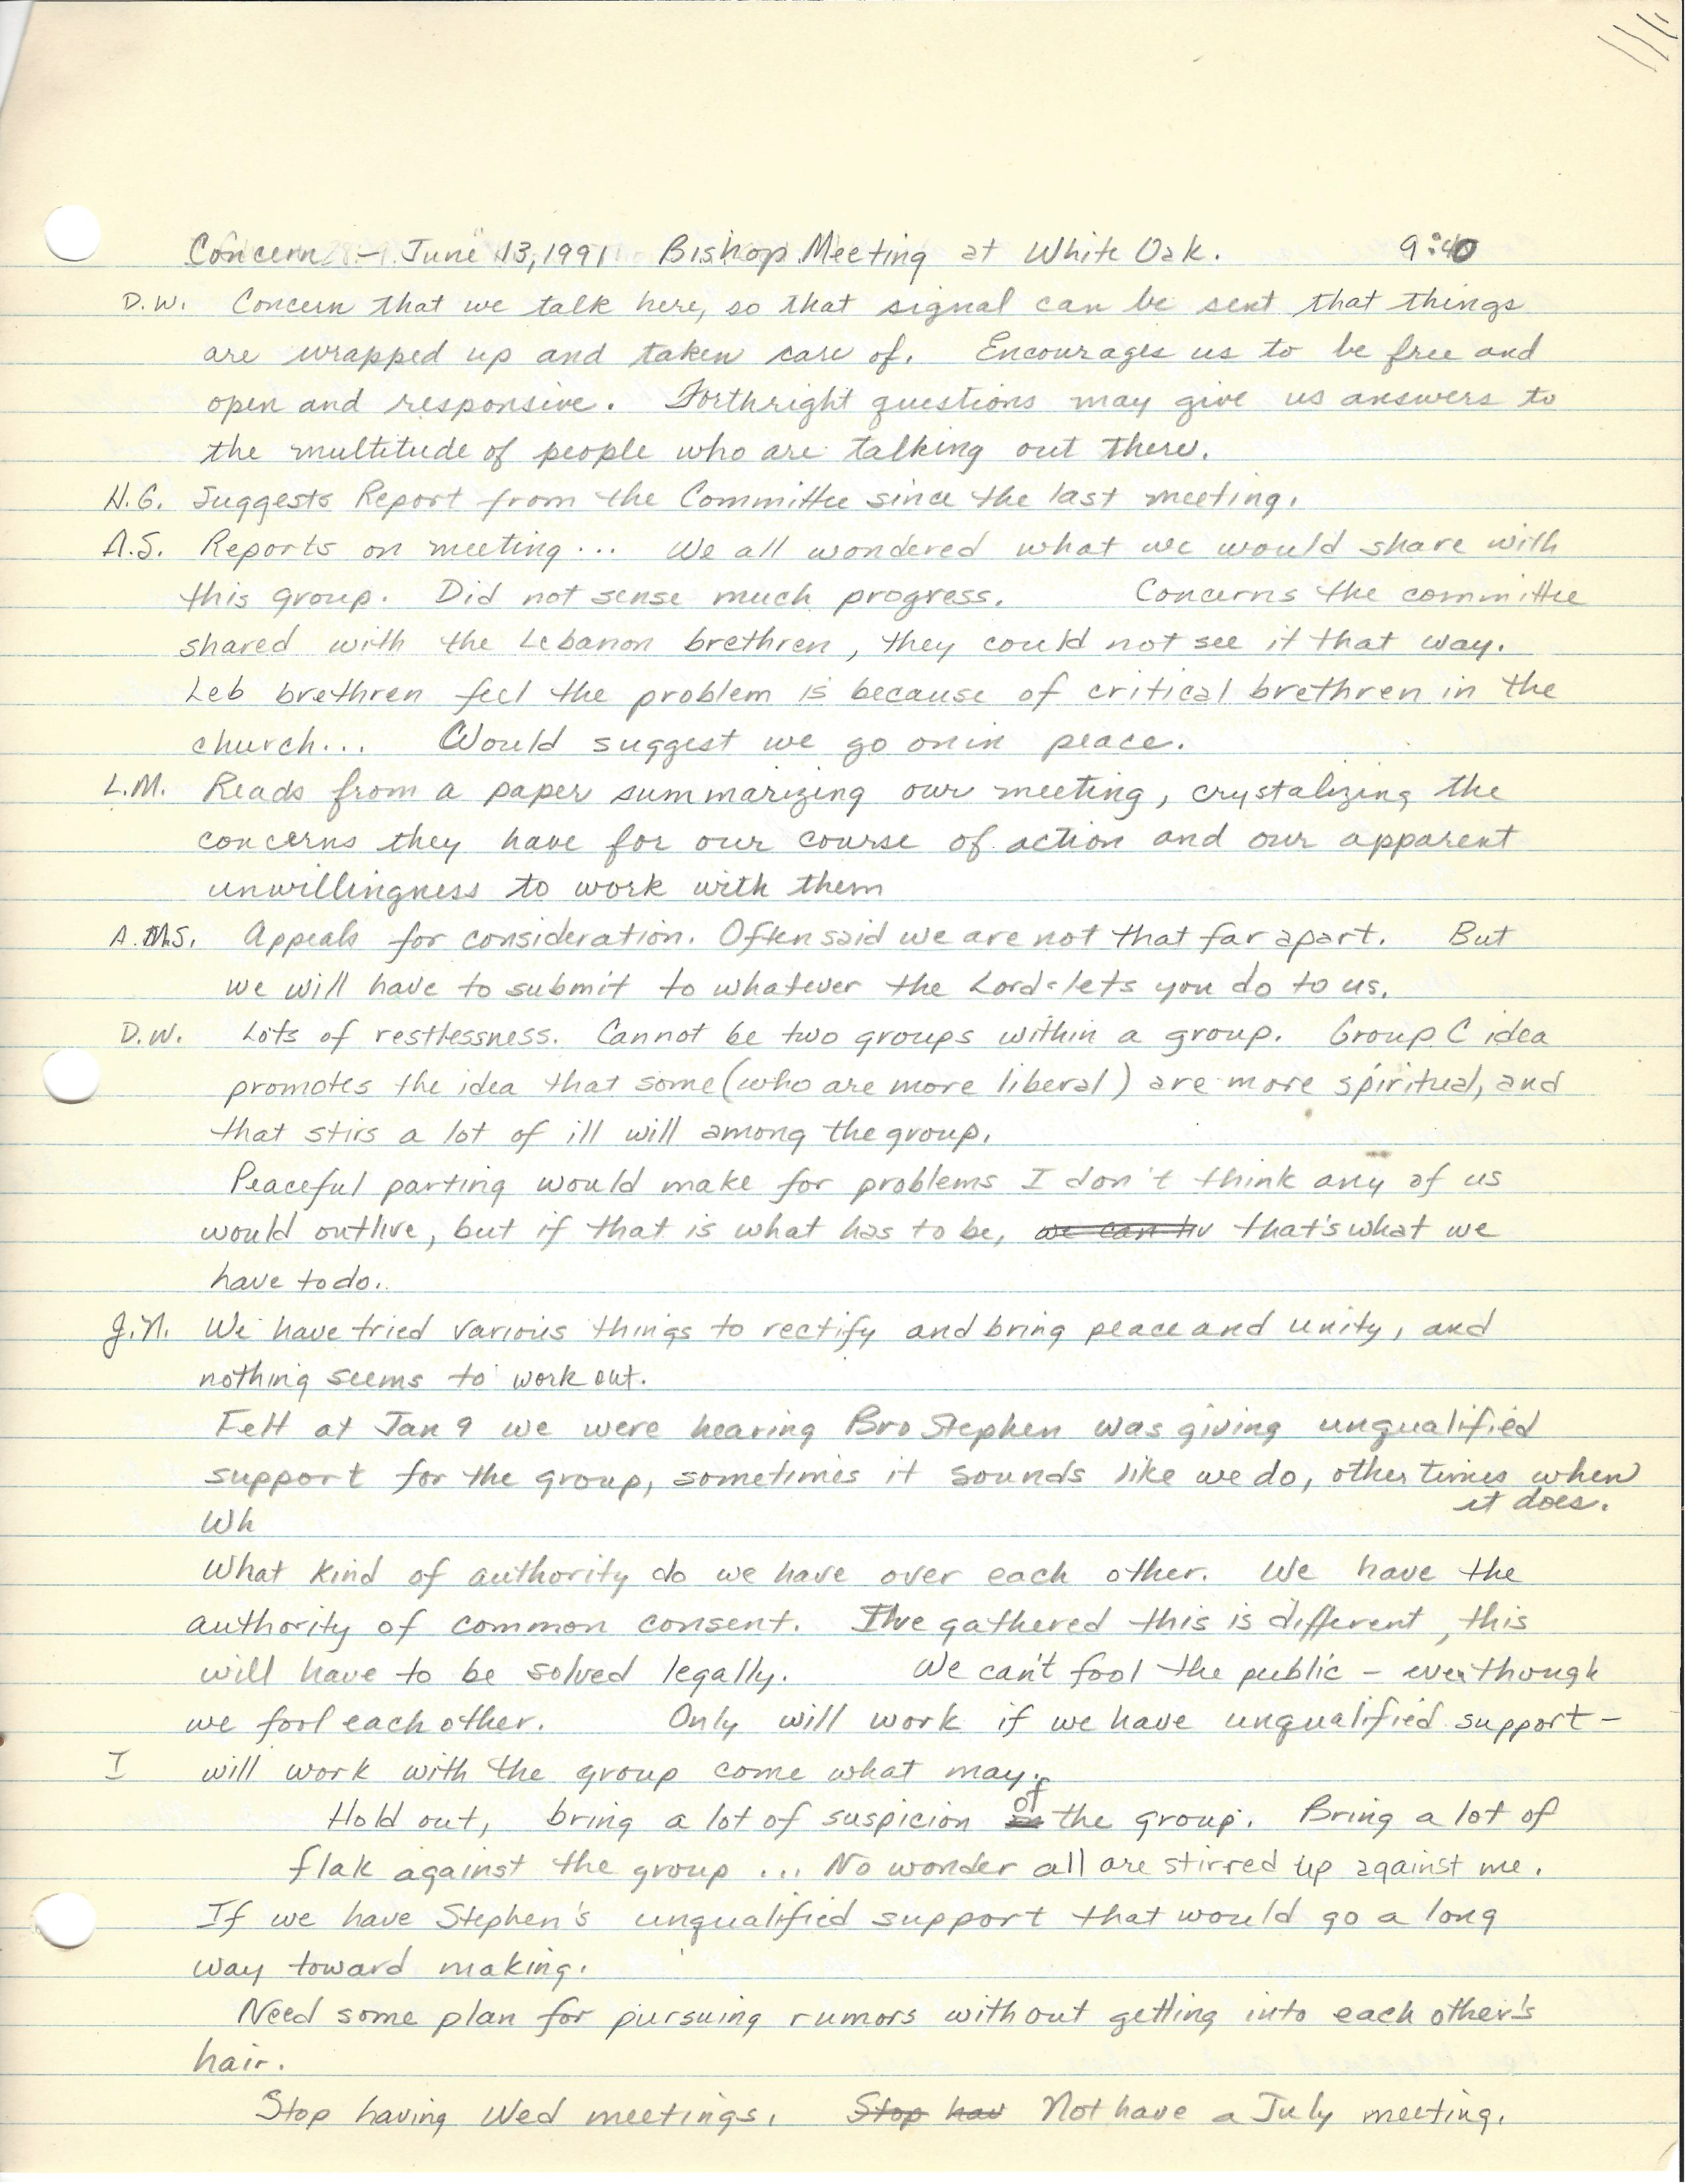 Concern - June 13, 1991 Bishop Meeting at White Oak. 9:40
D.W. Concern that we talk here, so that signal can be sent that things
are wrapped up and taken care of. Encourages us to be free and
open and responsive. Forthright questions may give us answers to
the multitude of people who are talking out there.
H.G. Suggests Report from the Committee since the last meeting.
A.S. Reports on meeting... We all wondered what we would share with
this group. Did not sense much progress. Concerns the committee
shared with the Lebanon brethren, they could not see it that way.
Leb brethren feel the problem is because of critical brethren in the
church... Would suggest we go on in peace.
L.M. Reads from a paper summarizing our meeting, crystalizing the
concerns they have for our course of action and our apparent
unwillingness to work with them
A.M.S. Appeals for consideration. Often said we are not that far apart. But
we will have to submit to whatever the Lord lets you do to us.
D.W. Lots of restlessness. Cannot be two groups within a group. Group C idea
promotes the idea that some (who are more liberal) are more spiritual, and
that stirs a lot of ill will among the group.
Peaceful parting would make for problems I don't think any of us
would outlive, but if that is what has to be, we can liv that's what we
have to do.
J.N. We have tried various things to rectify and bring peace and unity, and
nothing seems to work out.
Felt at Jan 9 we were hearing Bro Stephen was giving unqualified
support for the group, sometimes it sounds like we do, other times when
it does.
Wh
What kind of authority do we have over each other. We have the
authority of common consent. I've gathered this is different, this
will have to be solved legally. We can't fool the public - even though
we fool each other. Only will work if we have unqualified support -
I will work with the group come what may.
Hold out, bring a lot of suspicion of the group. Bring a lot of
flak against the group ... No wonder all are stirred up against me.
If we have Stephen's unqualified support that would go a long
way toward making.
Need some plan for pursuing rumors without getting into each other's
hair.
Stop having Wed meetings. Stop hav Not have a July meeting.